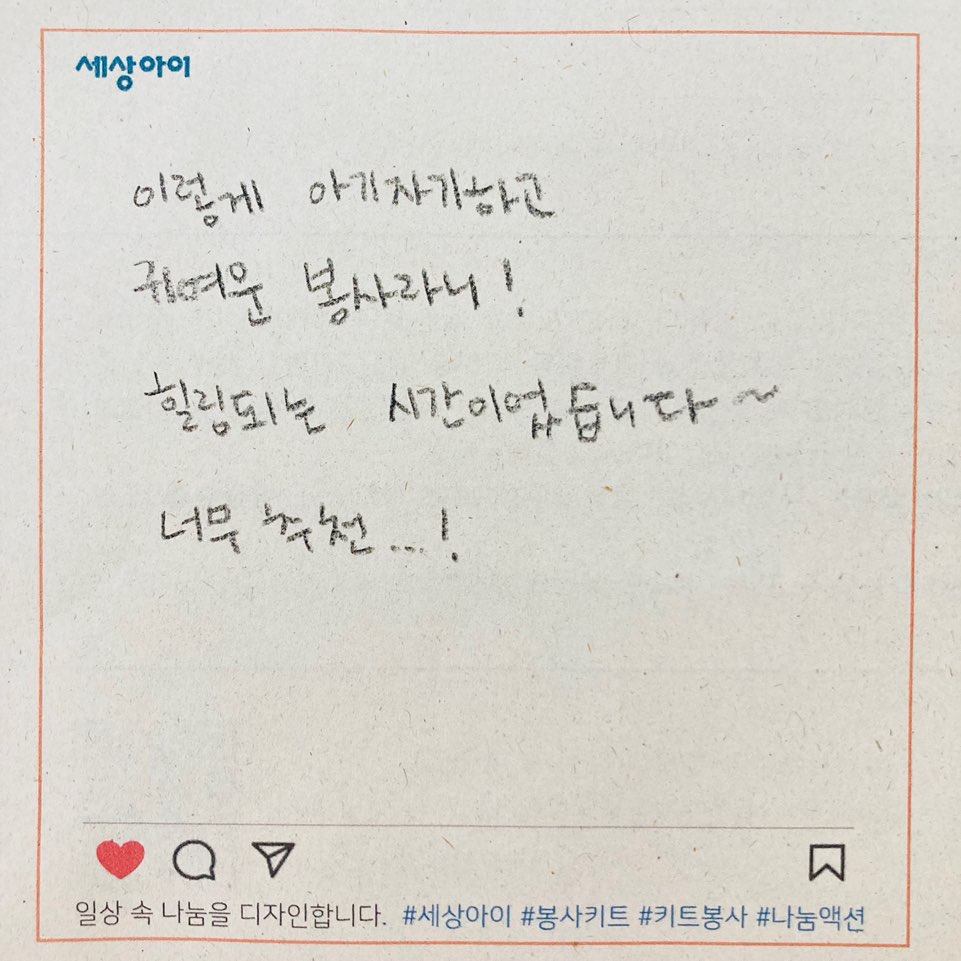 세상아이
이렇게 아기자기하고
귀여운 봉사라니!
힐링되는 시간이었습니다~
너무 추천...!
일상 속 나눔을 디자인합니다. #세상아이 #봉사키트 #키트봉사 #나눔액션